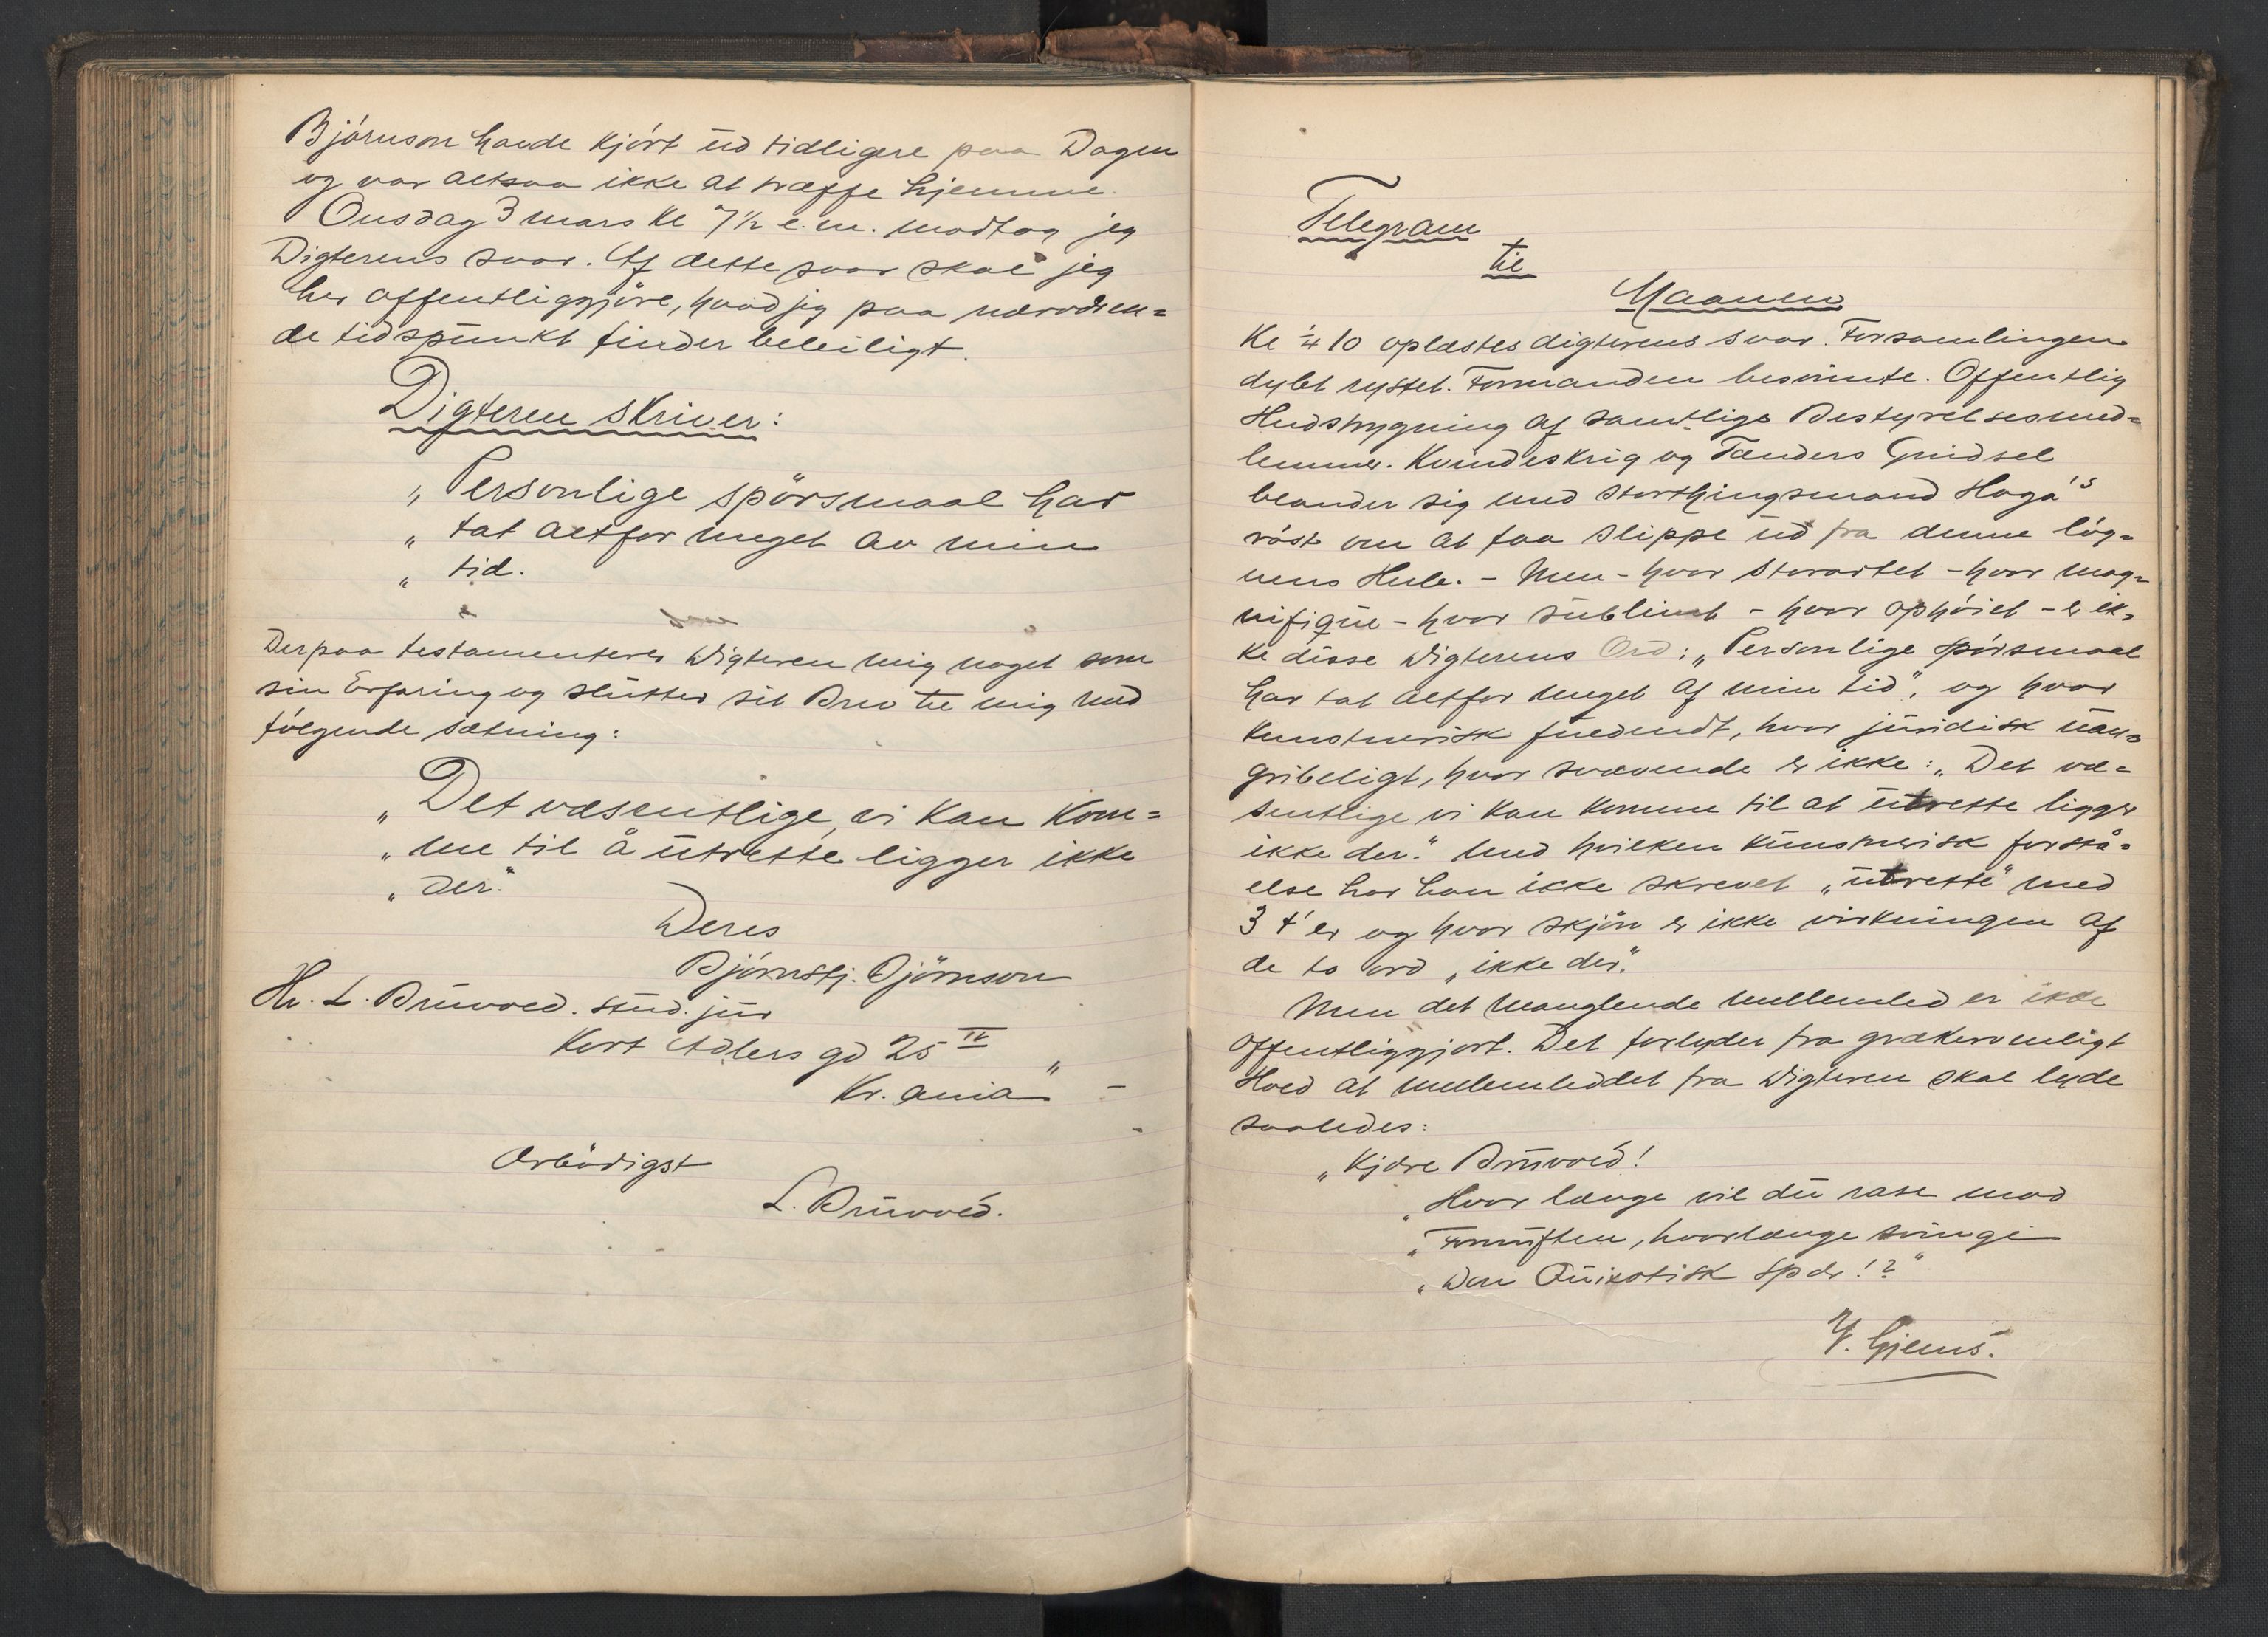 Björnson havde kjört ud tidligere paa Dagen
og var altsaa ikke at træffe hjemme.
Onsdag 3 mars Kl 7½ e.m. modtog jeg
Digterens svar. Af dette svar skal jeg
her offentliggjöre, hvad jeg paa nærværen=
de tidspunkt finder beleiligt.
Digteren skriver:
„ Personlige spörsmaal har
„ tat altfor meget av min
„ tid.
Derpaa testamenterer Digteren mig noget som
sin Erfaring og slutter sit Brev til mig med
fölgende sætning:
„ Det væsentlige, vi kan kom=
„ me til å utrette ligger ikke
„ der."
Deres
Björnstj. Björnson
Hr. L. Bruvold. stud. jur
Kort Adlers gd 25 IV
Kr. ania" –
Ærbödigst
L. Bruvold.
Telegram
til
Maanen
Kl ¼ 10 oplæstes digterens svar. Forsamlingen
dybt rystet. Formanden besvimte. Offentlig
Hudstrygning af samtlige Bestyrelsesmed=
lemmer. Kvindeskrig og Tænders Gnidsel
blander sig med storthingsmand Hoga's
röst om at faa slippe ud fra denne lög=
nens Hule. – Men – hvor storartet – hvor mag=
nifique – hvor sublimt – hvor ophöiet – er ik=
ke disse Digterens Ord: „Personlige spörsmaal
har tat altfor meget af min tid", og hvor
kunstnerisk fuldendt, hvor juridisk uan=
gribeligt, hvor svævende er ikke: „Det væ=
sentlige vi kan komme til at utrette ligger
ikke der." Med hvilken kunstnerisk forstå=
else har han ikke skrevet „utrette" med
3 t'er og hvor skjön er ikke virkningen af
de to ord „ikke der".
Men det manglende mellemled er ikke
offentliggjort. Det forlyder fra grækervenligt
Hold at mellemleddet fra Digteren skal lyde
saaledes:
„Kjære Bruvold!
„Hvor længe vil du rase mod
„Fornuften, hvorlænge svinge
„Don Quixotisk spær!?"
Y. Gjems.